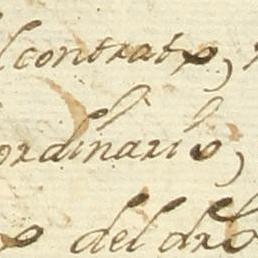 l contrato,
ordinario,
o del dro